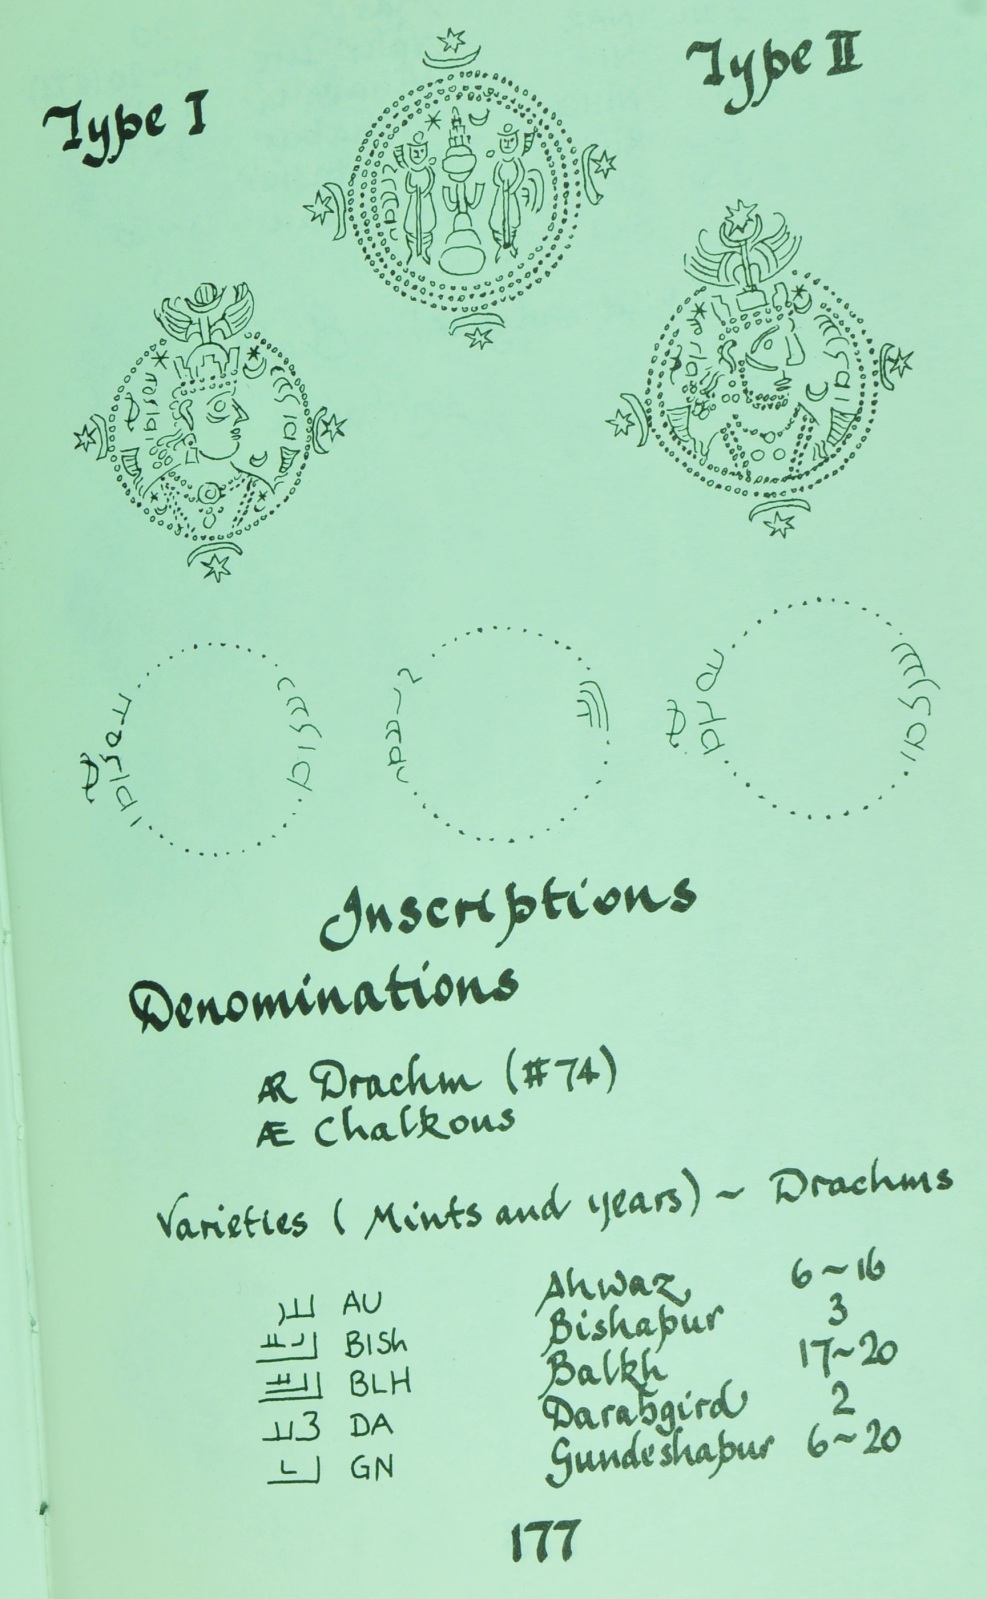 Type I
Type II
Inscriptions
Denominations
Æ Drachm (#74)
Æ Chalkous
Varieties (Mints and years) ~ Drachms
AU Ahwaz 6~16
BISh Bishapur 3
BLH Balkh 17~20
DA Darabgird 2
GN Gundeshapur 6~20
177